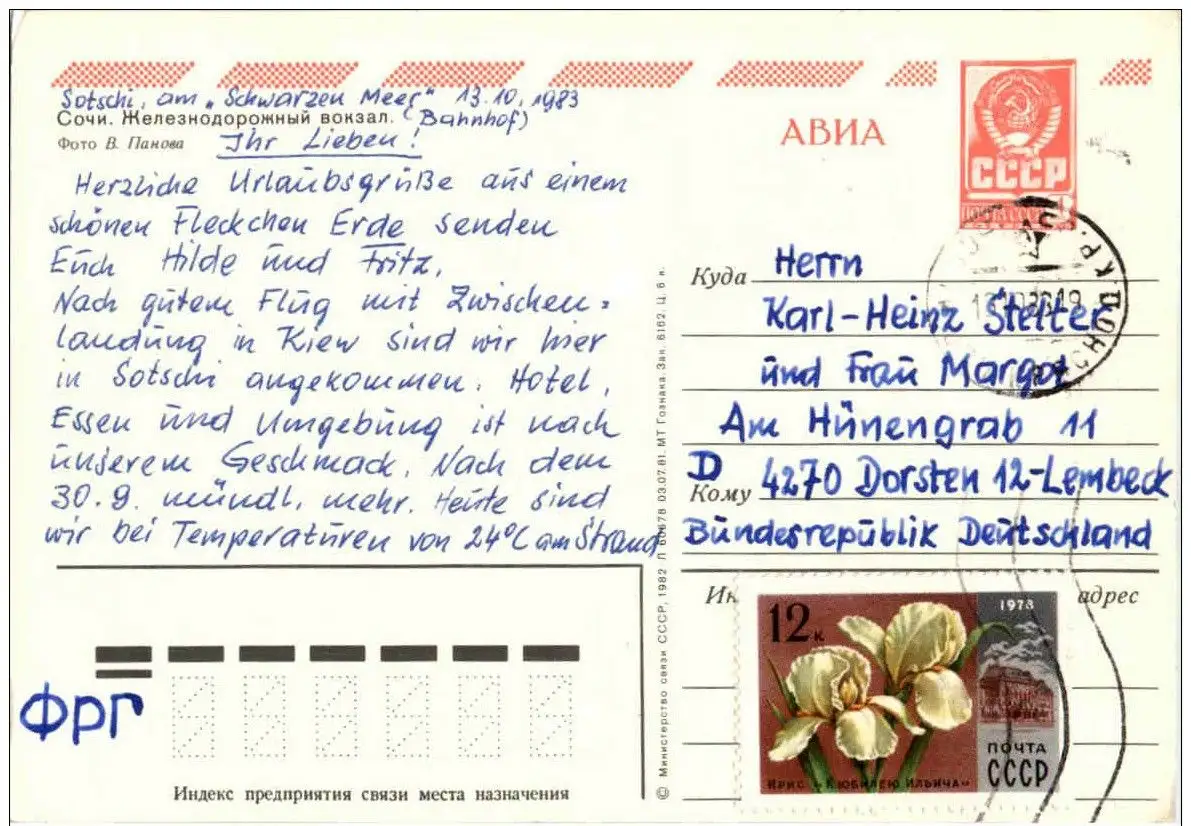 Sotschi, am „Schwarzen Meer“ 13.10.1983
Сочи. Железнодорожный вокзал. (Bahnhof)
Фото В. Панова
Ihr Lieben!
Herzliche Urlaubsgrüße aus einem
schönen Fleckchen Erde senden
Euch Hilde und Fritz.
Nach gutem Flug mit Zwischen=
landung in Kiew sind wir hier
in Sotschi angekommen. Hotel,
Essen und Umgebung ist nach
unserem Geschmack. Nach dem
30.9. mündl. mehr. Heute sind
wir bei Temperaturen von 24°C am Strand
ФРГ
Индекс предприятия связи места назначения
© Министерство связи СССР, 1982 Л 60678 03.07.81. МТ Гознака. Зак. 6162. Ц. 6 к.
АВИА
СССР
ПОЧТА СССР
Куда Herrn
Karl-Heinz Stelter
und Frau Margot
Am Hünengrab 11
D 4270 Dorsten 12-Lembeck
Кому
Bundesrepublik Deutschland
адрес
12 к
1978
ПОЧТА
СССР
Ирис «К юбилею Ильича»